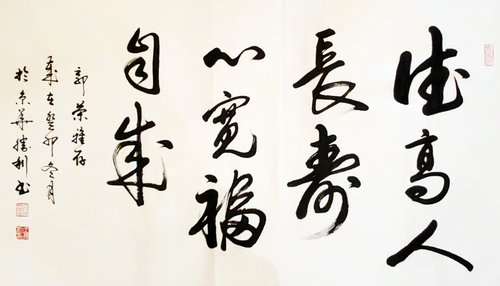 德高人
長壽
心寬福
自來
郭榮雅存
歲在癸卯冬月
於京華勝利書